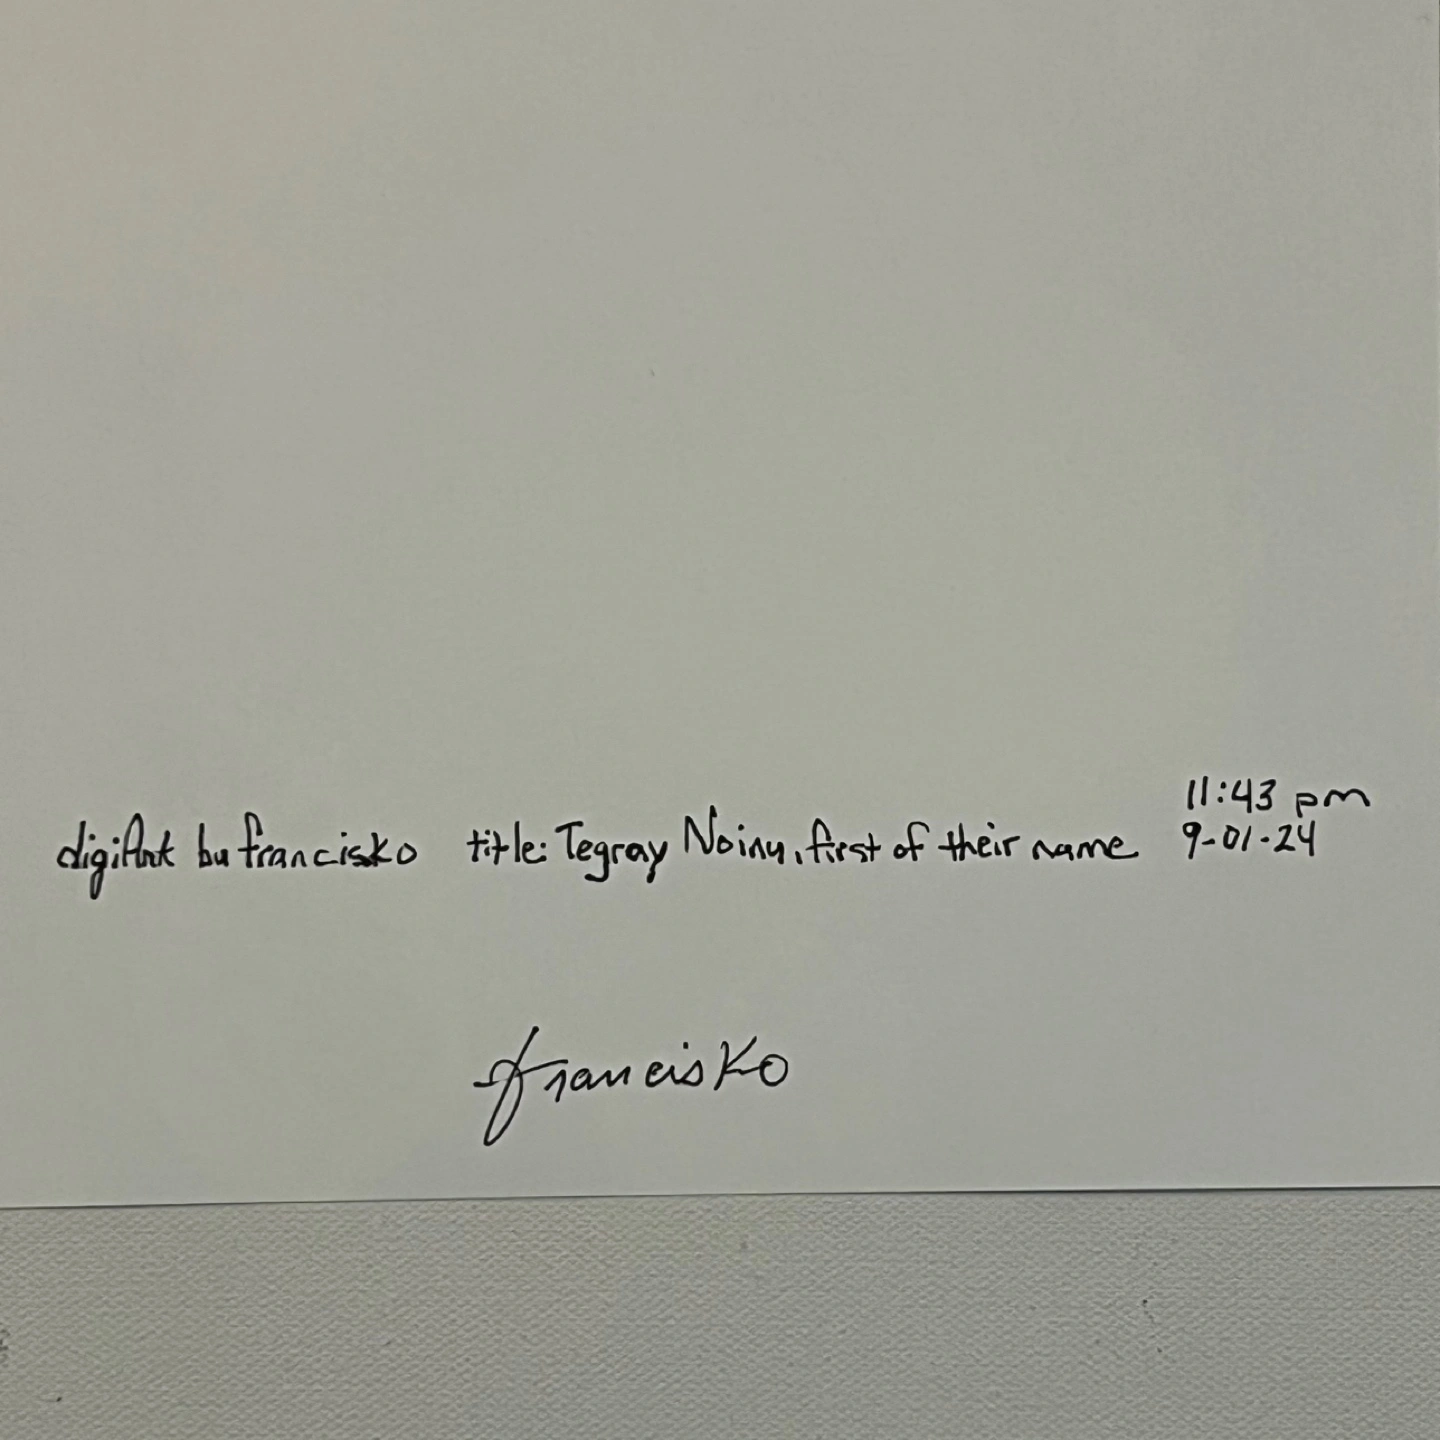 11:43 pm
digiArt by francisko title: Tegray Noinu, first of their name 9-01-24
francisko